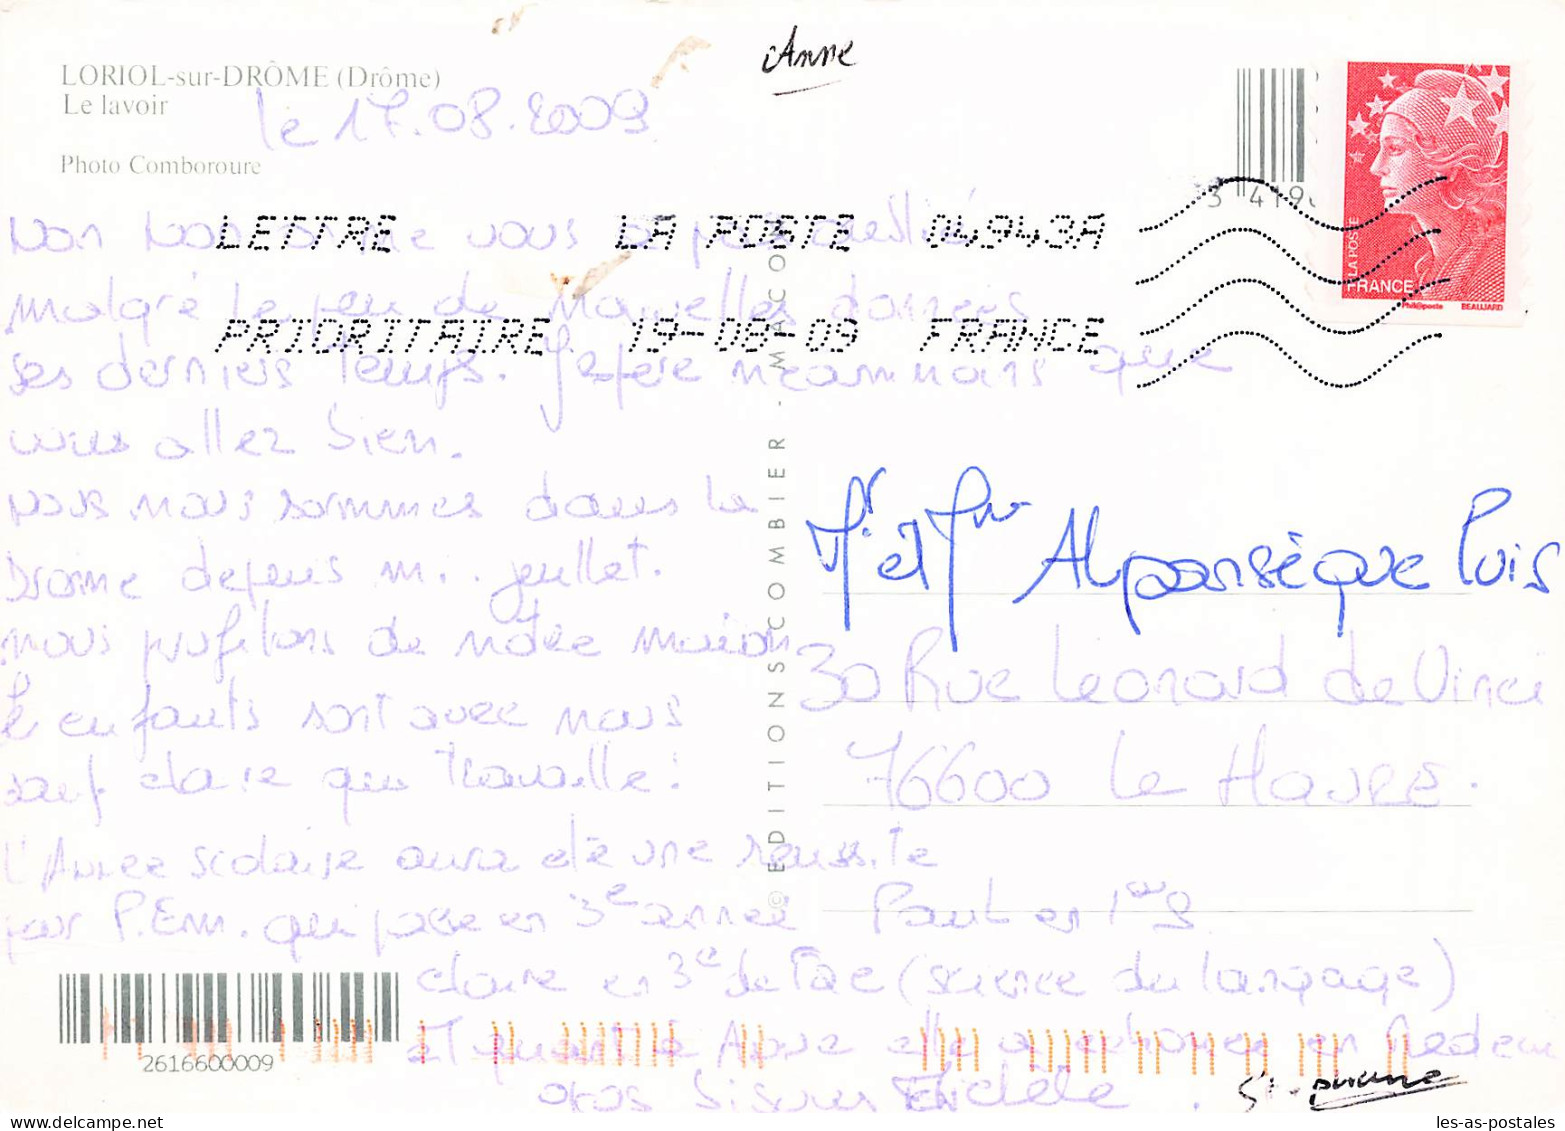 LORIOL-sur-DRÔME (Drôme)
Le lavoir
Photo Comboroure
Anne
le 17.08.2009
3 419
LA POSTE
FRANCE
Phil@poste
BEAUJARD
LETTRE LA POSTE 04943A
PRIORITAIRE 19-08-09 FRANCE
Non Non vous
malgré le peu de Nouvelles données
ses derniers Temps. J'espère néanmoins que
vous allez bien.
nous nous sommes dans la
Drome depuis juillet.
nous profitons de notre maison
Le enfants sont avec nous
sauf claire qui travaille!
L'Année scolaire aura été une réussite
pour P.Em. qui passe en 3e année Paul en 1ère S
claire en 3e de Fac (science du langage)
et quant à Anne elle en
gros Bisous Michèle
EDITIONS COMBIER - MACON
Mr et Mme Alponsèque Puis
30 Rue Léonard de Vinci
76600 Le Havre.
2616600009
les-as-postales.com